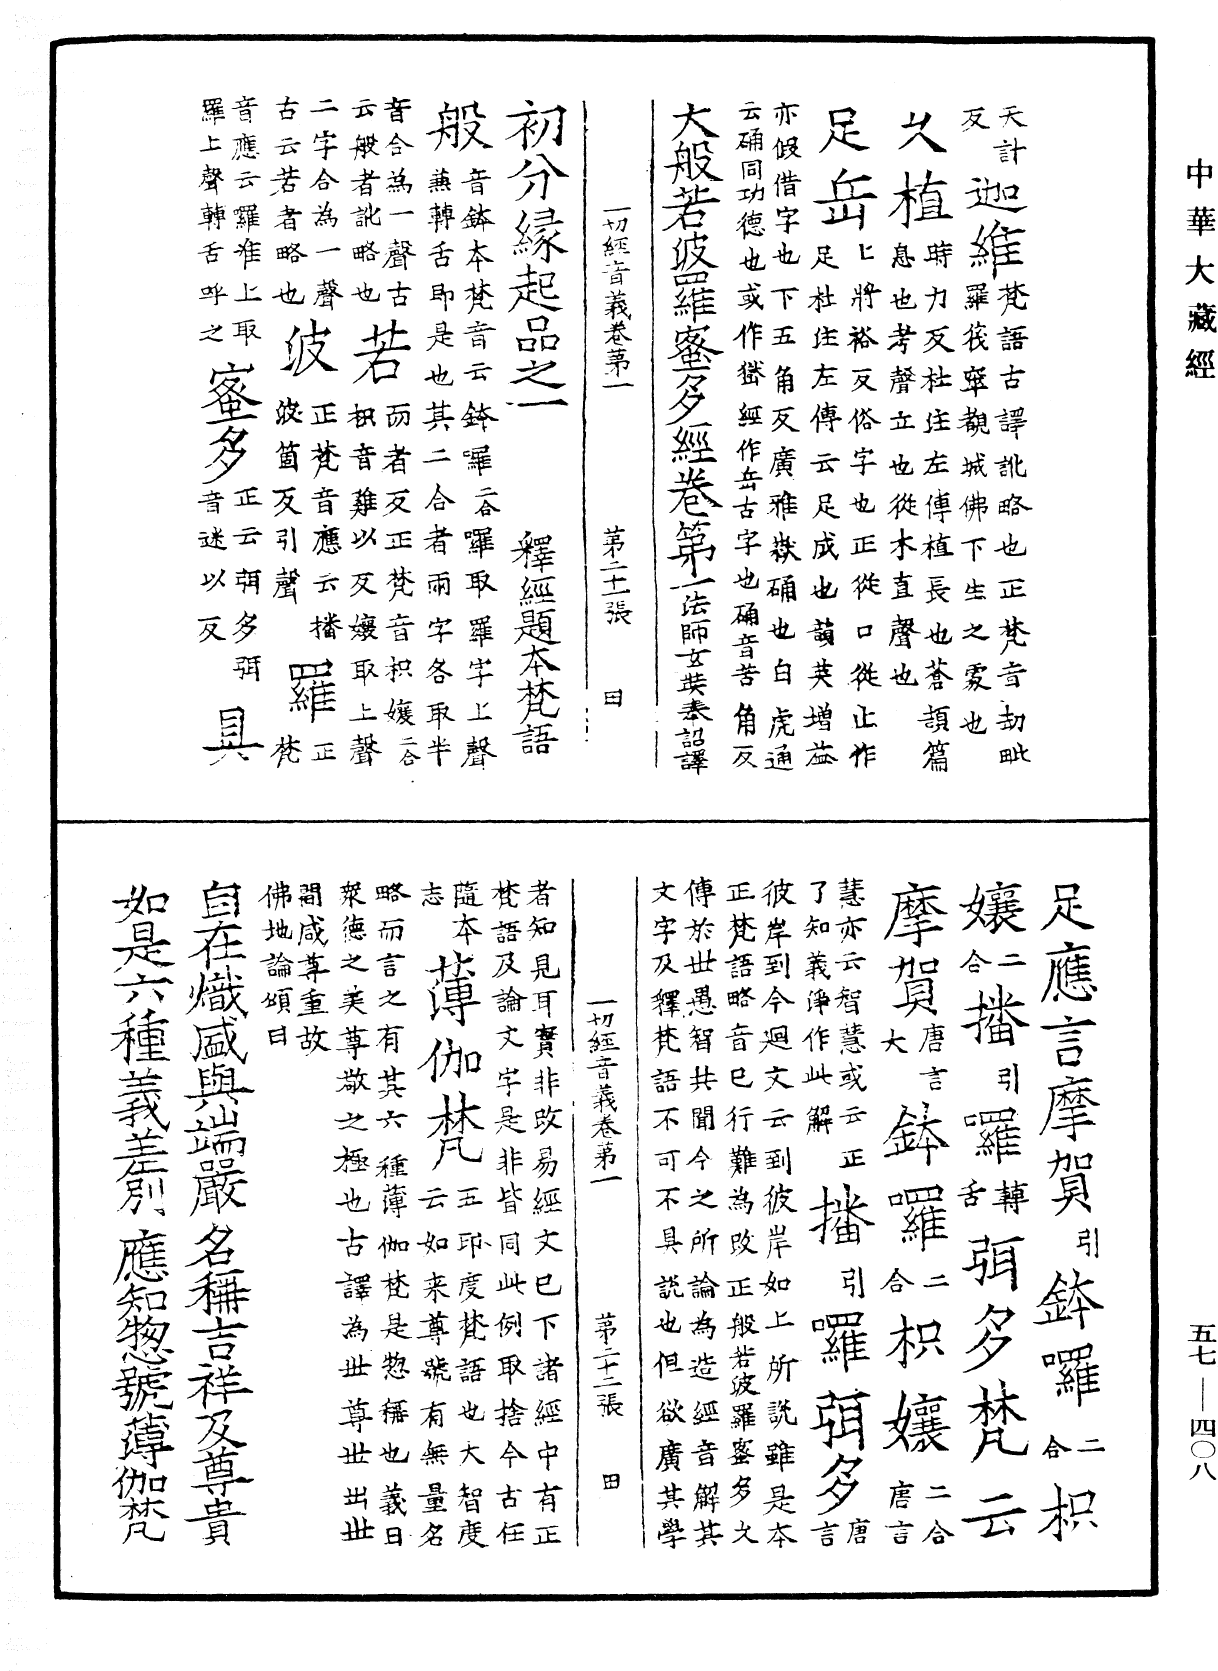 中華大藏經
天計反 迦維 梵語古譯訛略也正梵音劫毗
羅筏窣覩城佛下生之處也
久植 時力反杜注左傳植長也蒼頡篇
息也考聲立也從木直聲也
足岳 上將裕反俗字也正從口從止作
足杜注左傳云足成也韻英增益
亦假借字也下五角反廣雅嶽确也白虎通
云确同功德也或作嶽經作岳古字也确音苦角反
大般若波羅蜜多經卷第一 法師玄奘奉詔譯
一切經音義卷第一 第二十一張 田
初分緣起品之一 釋經題本梵語
般 音鉢本梵音云鉢囉二合囉取羅字上聲
兼轉舌即是也其二合者兩字各取半
音合為一聲古云般者訛略也 若 而者反正梵音枳孃二合
枳音雞以反孃取上聲
二字合為一聲古云若者略也 波 正梵音應云播
波箇反引聲 羅 正梵
音應云羅准上取羅上聲轉舌呼之 蜜多 正云弭多弭
音迷以反 具
足應言摩賀引鉢囉二合枳
孃二合播引囉轉舌弭多梵云
摩賀唐言大鉢囉二合枳孃二合唐言
慧亦云智慧或云正了知義淨作此解 播引囉弭多唐言
彼岸到今迴文云到彼岸如上所說雖是本
正梵語略音已行難為改正般若波羅蜜多久
傳於世愚智共聞今之所論為造經音解其
文字及釋梵語不可不具說也但欲廣其學
一切經音義卷第一 第二十二張 田
者知見耳實非改易經文已下諸經中有正
梵語及論文字是非皆同此例取捨今古任
隨本志 薄伽梵 五印度梵語也大智度
云如来尊號有無量名
略而言之有其六種薄伽梵是惣稱也義曰
衆德之美尊敬之極也古譯為世尊世出世
間咸尊重故
佛地論頌曰
自在熾盛與端嚴 名稱吉祥及尊貴
如是六種義差別 應知惣號薄伽梵
五七—四〇八